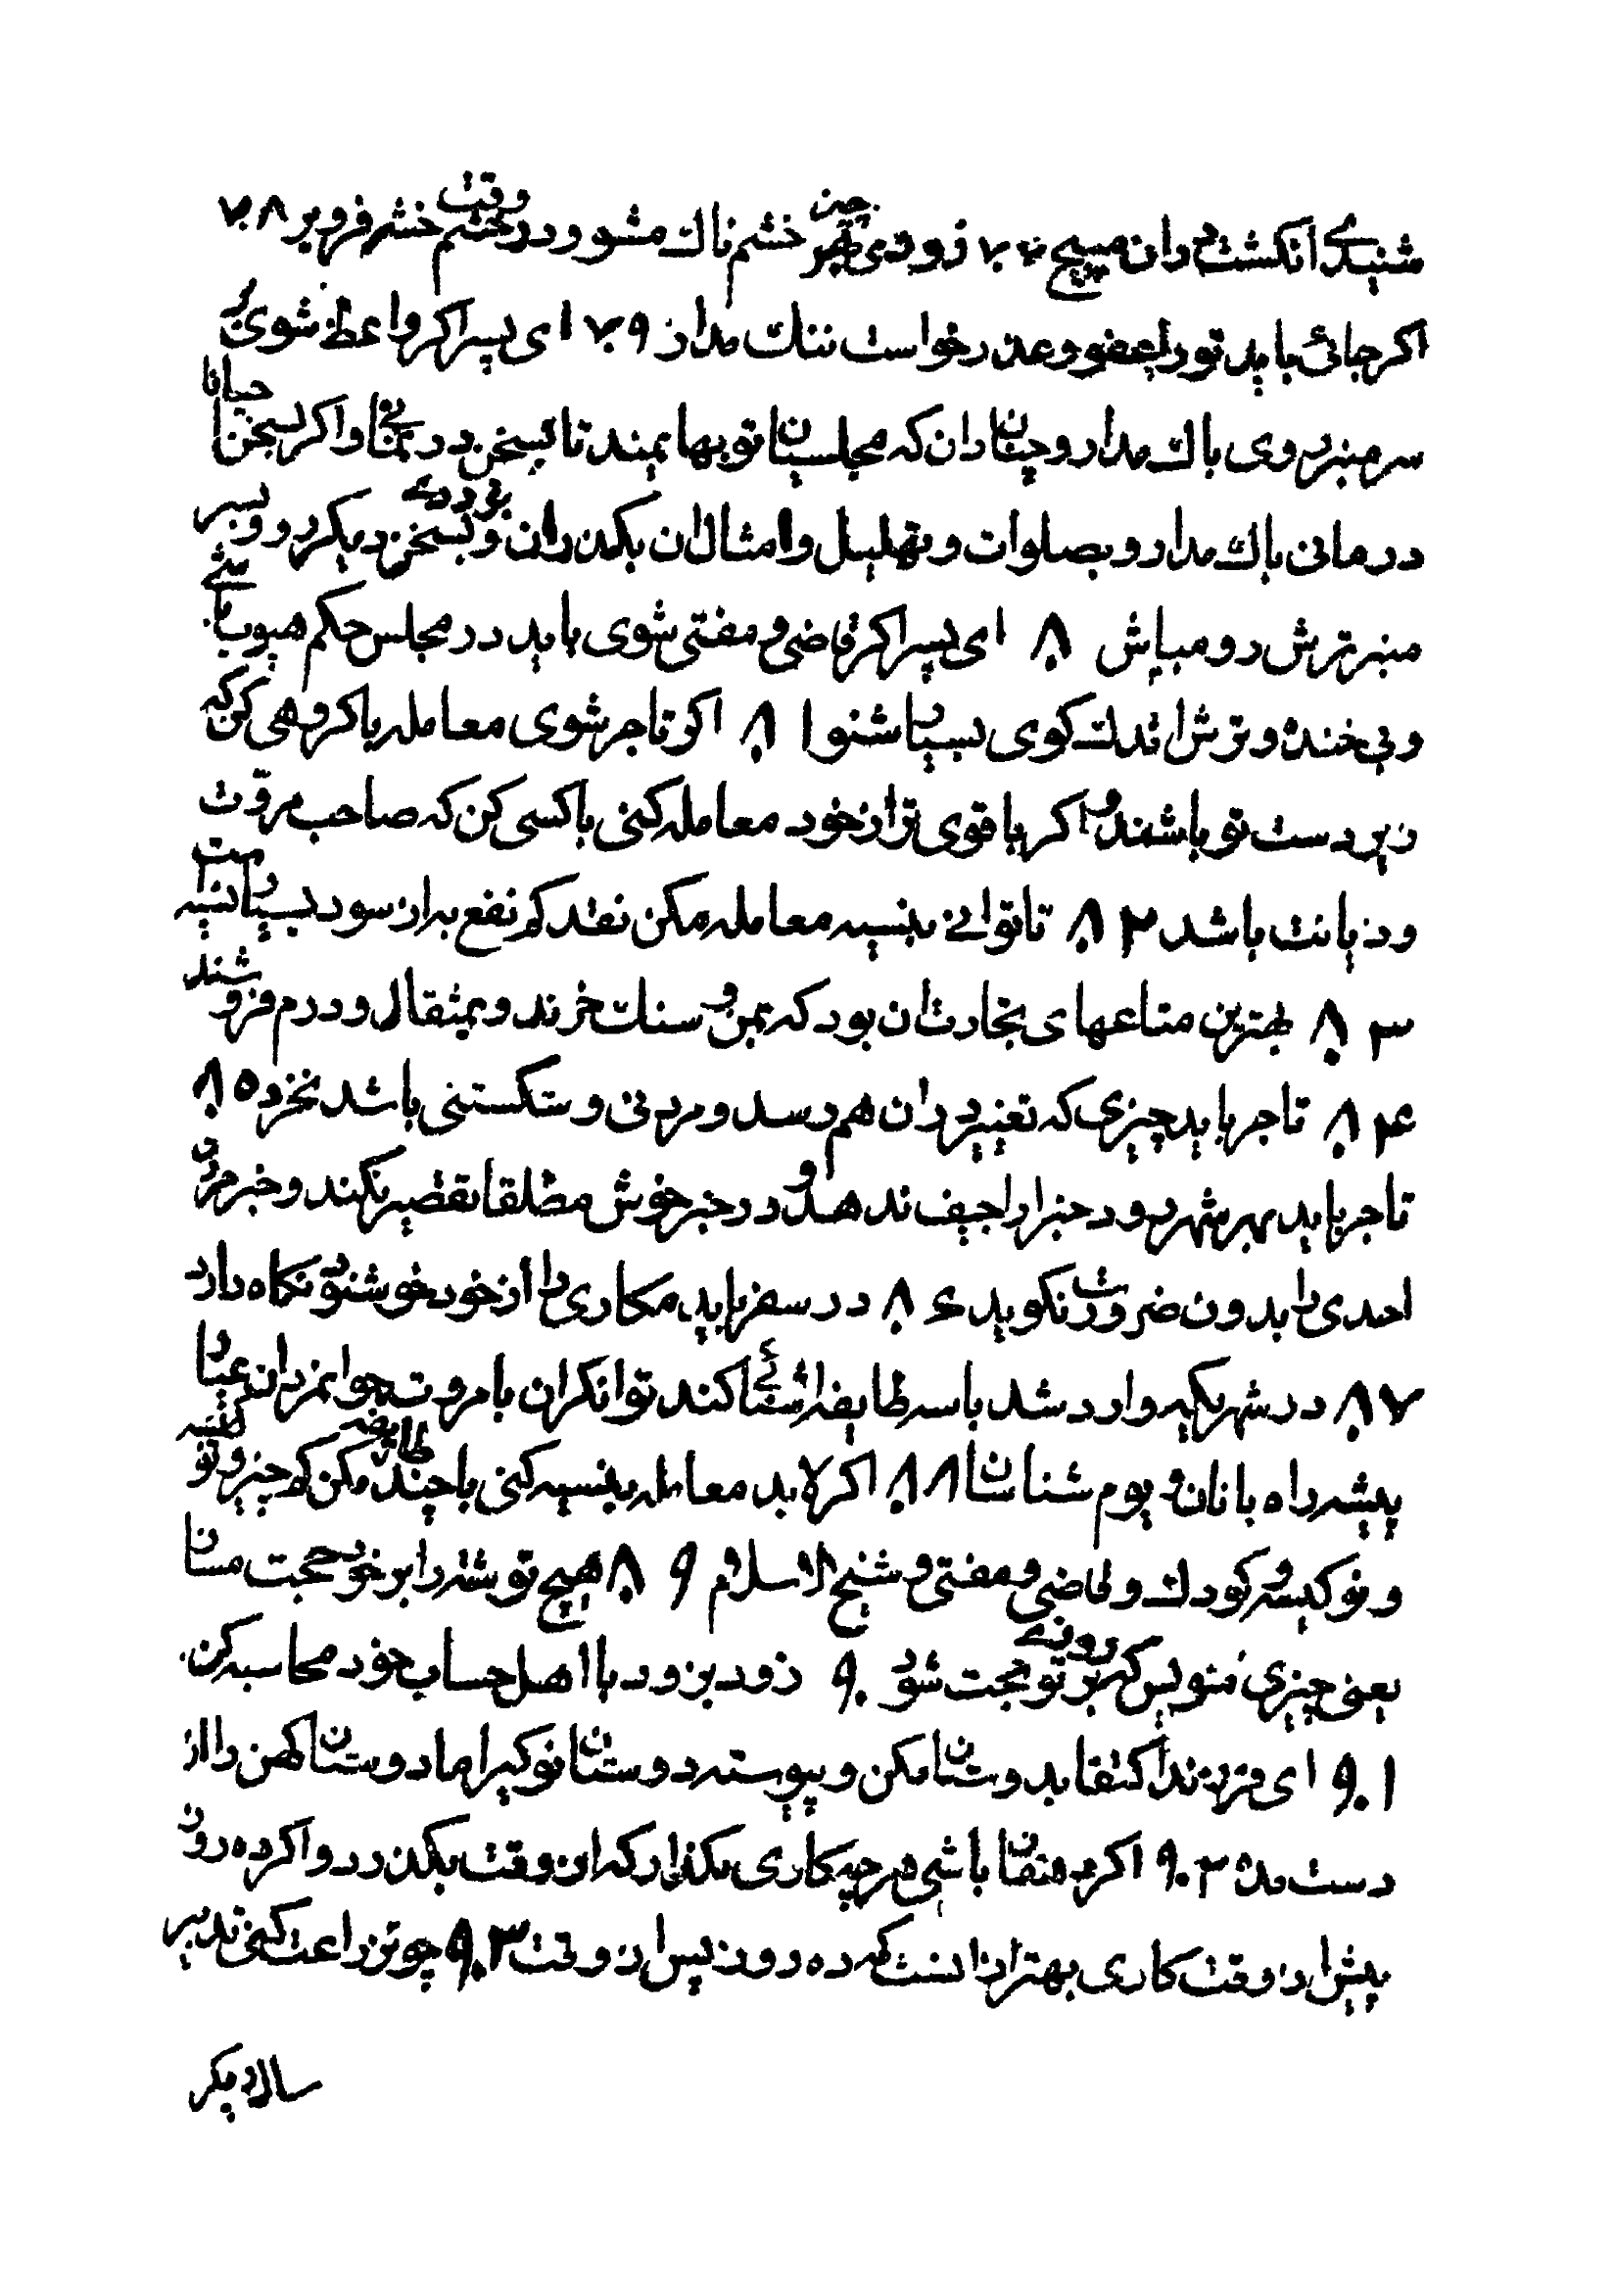 شنیدی انکشت دران مپیچ ۷۰۷ زود بی هر چیز خشم ناك مشو و در وقت خشم خشم فرو بر ۷۰۸
اکر جائی باید تو را عفو و عذر خواست ننك مدار ۷۰۹ ای پسر اکر واعظ شوی بر
سر منبر روی باك مدار و چنان دان که مجلسیان تو بهایمند تا بسخن در نمانی و اکر احیانا بسخن
درمانی باك مدار و بصلوات و تهلیل و امثال ان بکذران و بزودی بسخن دیکر رو و بر سر
منبر ترش رو مباش ۸۰ ای پسر اکر قاضی و مفتی شوی باید در مجلس حکم مهیوب باشی
و بی خنده و ترش اندك کوی بسیار شنو ۸۰۱ اکر تاجر شوی معامله با کروهی کن که
زیر دست تو باشند و اکر با قوی تر از خود معامله کنی با کسی کن که صاحب مروّت
و دیانت باشد ۸۰۲ تا توانی بنسیه معامله مکن نقد کم نفع به از سود بسیار نسیه است
۸۰۳ بهترین متاعهای تجارت ان بود که بمن و سنك خرند و بمثقال و درم فروشند
۸۰۴ تاجر باید چیزی که تغییر دران هم رسد و مردنی و شکستنی باشد نخرد ۸۰۵
تاجر باید بهر شهر رود خبر اراجیف ندهد و در خبر خوش مطلقا تقصیر نکند و خبر مردن
احدی را بدون ضرورت نکوید ۸۰۶ در سفر باید مکاری را از خود خوشنود نکاه دارد
۸۰۷ در شهریکه وارد شد با سه طایفه اشنائی کند توانکران با مروت جوانمردان عیار
پیشه راه بانان و بوم شناسان ۸۰۸ اکر لابد معامله بنسیه کنی با چند طایفه مکن کم چیز و نو کیسه
و نو کیسه و کودك و قاضی و مفتی و شیخ الاسلام ۸۰۹ هیچ نوشته را بر خود حجت مستان
یعنی چیزی منویس که روزی بر تو حجت شود ۹۰ زود بزود با اهل حساب خود محاسبه کن
۹۰۱ ای فرزند اکتفا بدوستان مکن و پیوسته دوستان نو کیر اما دوستان کهن را از
دست مده ۹۰۲ اکر دهقان باشی هر چه کاری مکذار که ان وقت بکذرد و اکر ده روز
پیش از وقت کاری بهتر از انست که ده روز پس از وقت ۹۰۳ چون زراعت کنی تدبیر
سال دیکر